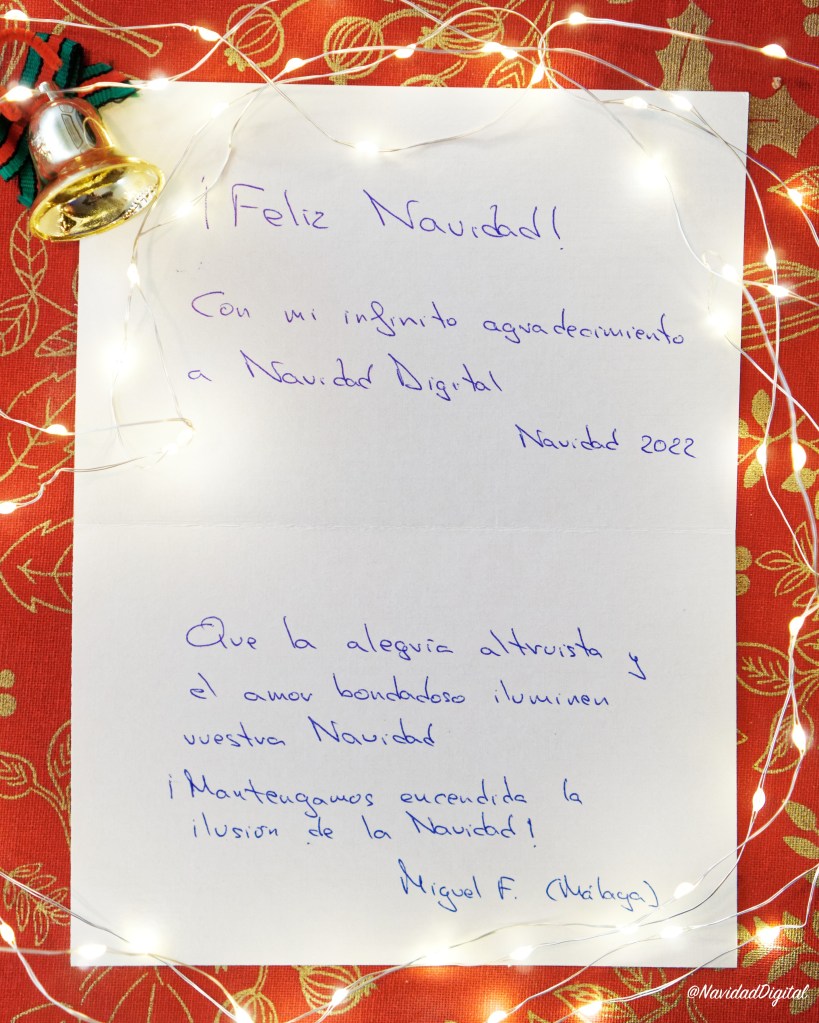 ¡Feliz Navidad!
Con mi infinito agradecimiento
a Navidad Digital
Navidad 2022
Que la alegría altruista y
el amor bondadoso iluminen
vuestra Navidad
¡Mantengamos encendida la
ilusión de la Navidad!
Miguel F. (Málaga)
@NavidadDigital